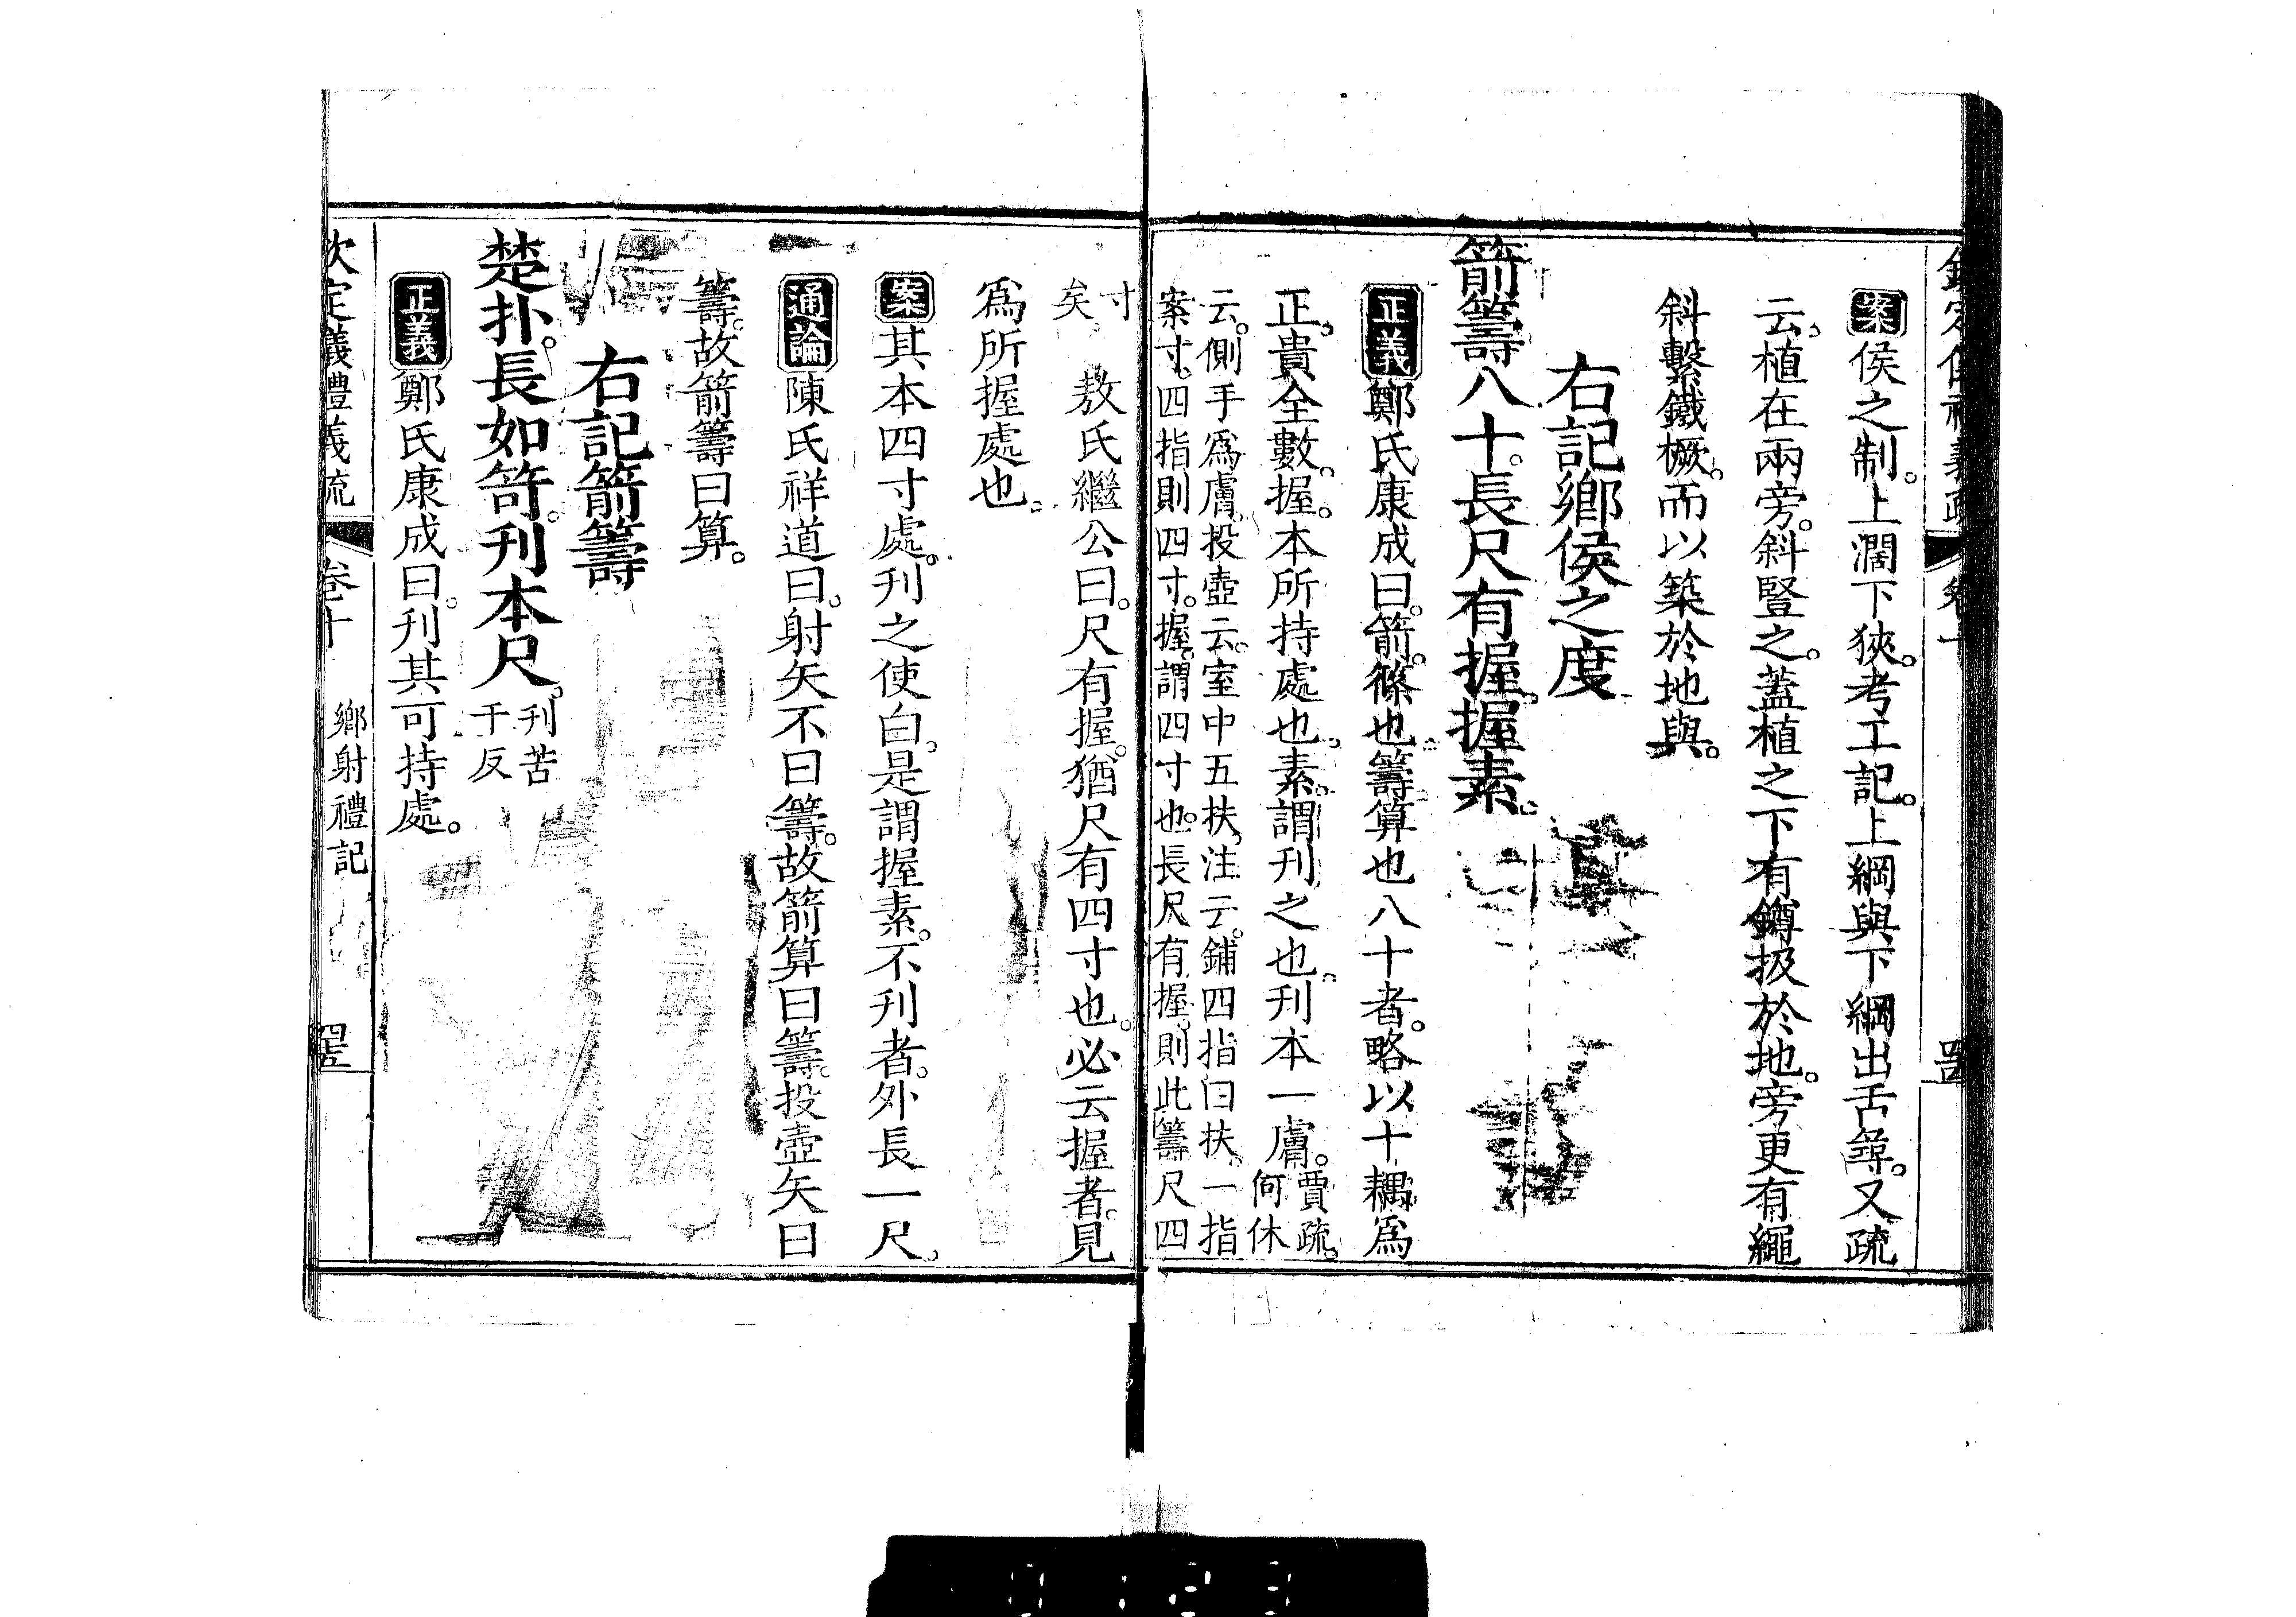 案侯之制。上濶下狹。考工記。上綱與下綱出舌鐞。又疏
云。植在兩旁。斜豎之。蓋植之下有鐏扱於地。旁更有繩
斜繫鐵橛。而以築於地與。
右記鄉侯之度
箭籌八十。長尺有握。握素。
正義鄭氏康成曰。箭。篠也。籌。算也。八十者。略以十耦爲
正。貴全數。握。本所持處也。素。謂刋之也。刋本一膚。賈疏。何休
云。側手爲膚。投壺云。室中五扶。注云。鋪四指曰扶。一指
案寸。四指則四寸。握。謂四寸也。長尺有握。則此籌尺四
寸矣。敖氏繼公曰。尺有握。猶尺有四寸也。必云握者。見
爲所握處也。
案其本四寸處。刋之使白。是謂握素。不刋者。外長一尺。
通論陳氏祥道曰。射矢不曰籌。故箭算曰籌。投壺矢曰
籌。故箭籌曰算。
右記箭籌
楚扑。長如笴。刋本尺。刋苦干反
正義鄭氏康成曰。刋其可持處。
欽定儀禮義疏 卷十 鄉射禮記